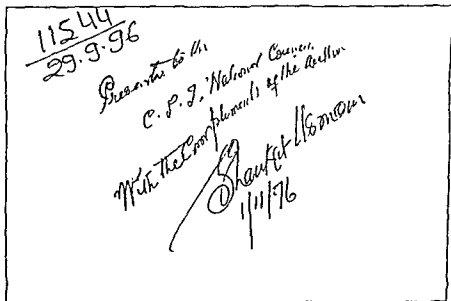 11544
29.9.96
Presented to the
C. P. I. National Council
With the Compliments of the author
Shaukat Usmani
1/11/76